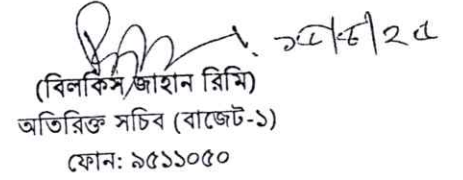 (বিলকিস জাহান রিমি)
অতিরিক্ত সচিব (বাজেট-১)
ফোন: ৯৫১১০৫০